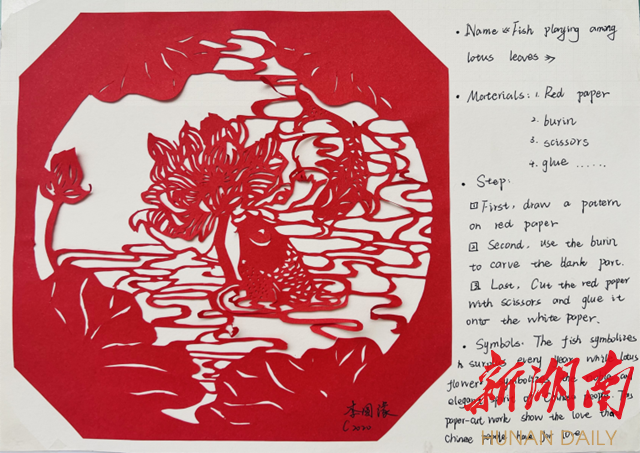 • Name 《Fish playing among
lotus leaves》
• Materials: 1. Red paper
2. burin
3. scissors
4. glue ......
• Step.
1 First, draw a pattern
on red paper
2 Second, use the burin
to carve the blank part.
3 Last, Cut the red paper
with scissors and glue it
onto the white paper.
• Symbols. The fish symbolizes
a surplus every year, while lotus
flower symbolizes the
elegant spirit of Chinese people. This
paper-cut work show the love that
Chinese people have for love
新湖南
HUNAN DAILY
2020